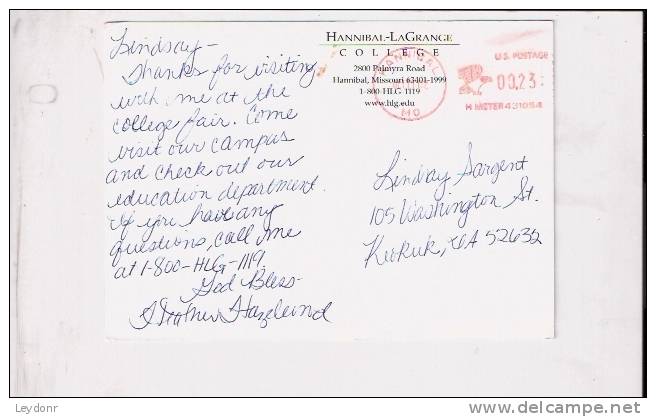 Lindsay-
Thanks for visiting
with me at the
college fair. Come
visit our campus
and check out our
education department.
If you have any
questions, call me
at 1-800-HLG-1119.
God Bless-
HANNIBAL-LAGRANGE
COLLEGE
2800 Palmyra Road
Hannibal, Missouri 63401-1999
1-800-HLG-1119
www.hlg.edu
HANNIBAL
MO
U.S. POSTAGE
00.23
H METER 431054
Lindsay Sargent
105 Washington St.
Keokuk, IA 52632
Leydonr
delcampe.net